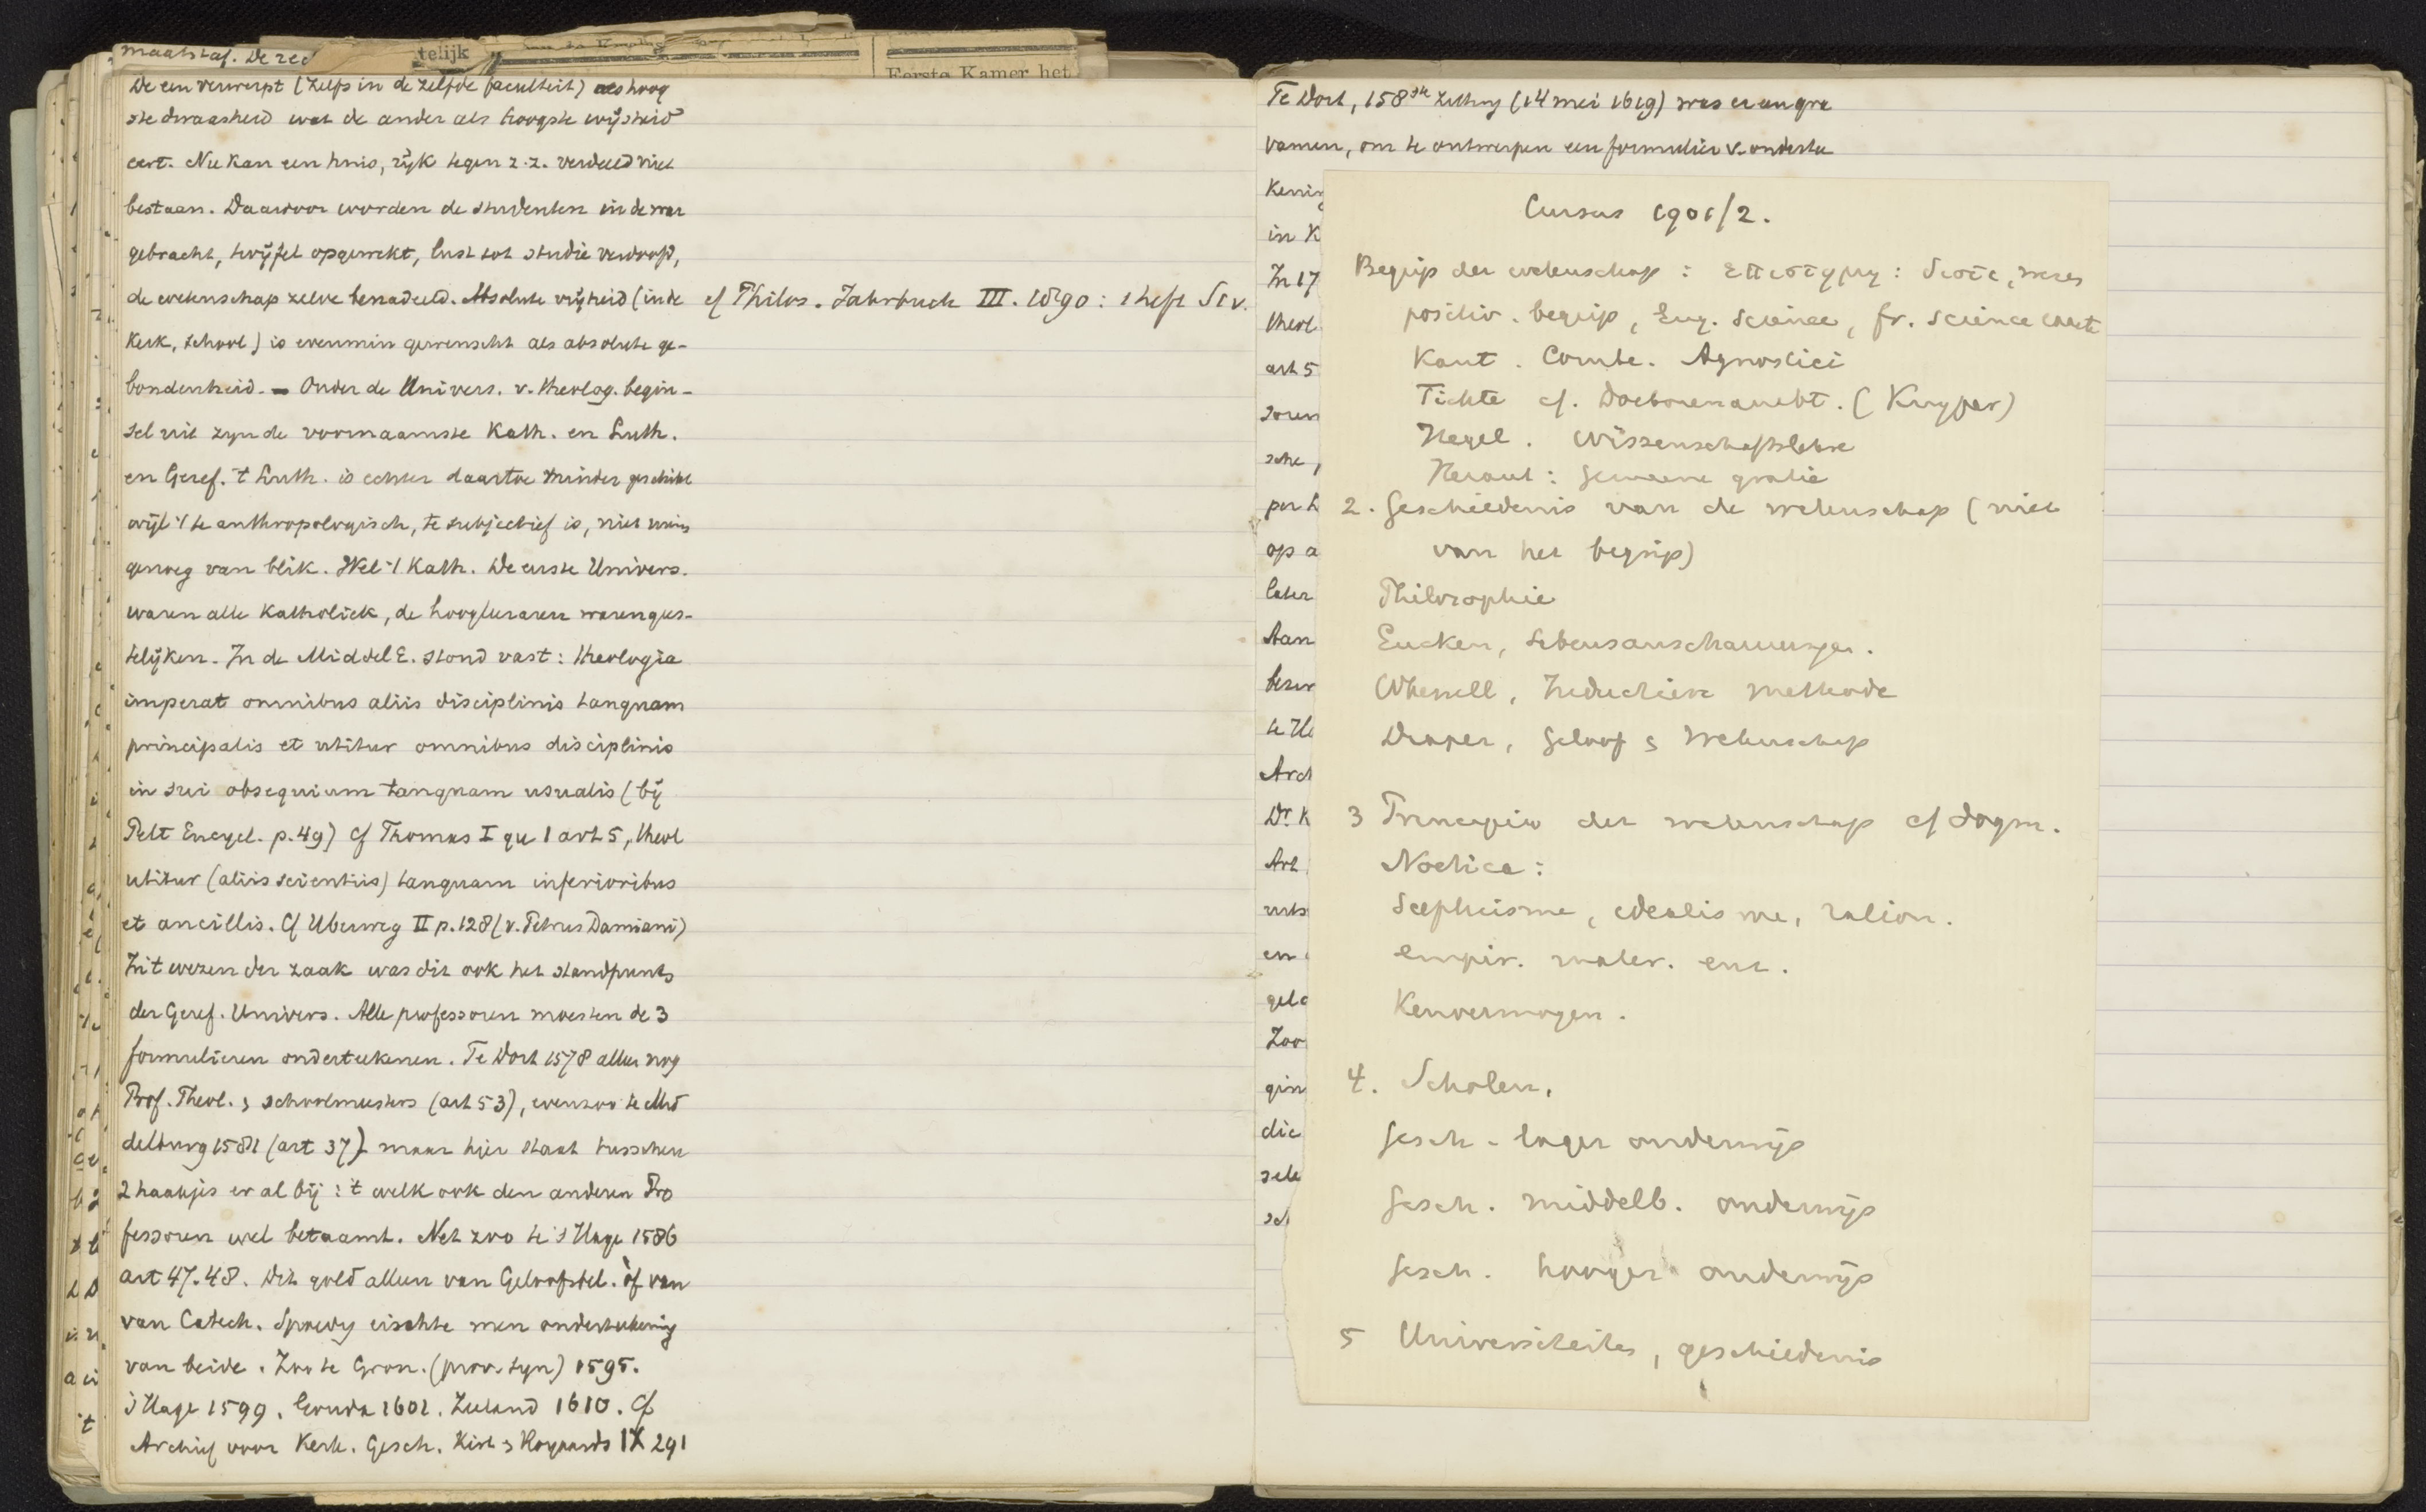 maatstaf. De red
telijk
Eerste Kamer het
De een verwerpt (zelfs in de zelfde faculteit) als hoog
ste dwaasheid wat de ander als hoogste wijsheid
eert. Nu kan een huis, rijk tegen z.z. verdeeld niet
bestaan. Daardoor worden de studenten in de war
gebracht, twijfel opgewekt, lust tot studie verdoofd,
de wetenschap zelve benadeeld. Absolute vrijheid (in de
Kerk, school) is evenmin gewenscht als absolute ge-
bondenheid. - Onder de Univers. v. theolog. begin-
sel uit zijn de voornaamste Kath. en Luth.
en Geref. 't Luth. is echter daartoe minder geschikt
wijl 't te anthropologisch, te subjectief is, niet ruim
genoeg van blik. Wel 't Kath. De eerste Univers.
waren alle Katholiek, de hoogleeraren waren gees-
telijken. In de Middel E. stond vast: theologia
imperat omnibus aliis disciplinis tanquam
principalis et utitur omnibus disciplinis
in sui obsequium tanquam usualis (bij
Pelt Encycl. p. 49) Cf Thomas I qu 1 art 5, theol
utitur (aliis scientiis) tanquam inferioribus
et ancillis. Cf Uberweg II p. 128 (v. Petrus Damiani)
In 't wezen der zaak was dit ook het standpunt
der Geref. Univers. Alle professoren moesten de 3
formulieren onderteekenen. Te Dort 1578 alleen nog
Prof. Theol. & schoolmeesters (art 53), evenzoo te Mid
delburg 1581 (art 37) maar hier staat tusschen
2 haakjes er al bij: 't welk ook den anderen Pro
fessoren wel betaamt. Net zoo te 's Hage 1586
art 47. 48. Dit gold alleen van Geloofsbel. òf van
van Catech. Spoedig eischte men onderteekening
van beide. Zoo te Gron. (prov. syn) 1595.
's Hage 1599. Gouda 1601. Zeeland 1610. Cf
Archief voor Kerk. Gesch. Kist & Royaards IX 291
cf Philos. Jahrbuch III. 1890: 1 heft
Te Dort, 158ste zitting (14 mei 1619) was er een gra
vamen, om te ontwerpen een formulier v. onderte
Kening
in K
In 17
theol
art 5
soren
sche
per
op a
later
Aan
bezw
te Ut
Arch
Dr. K
Art
uits
en
gelo
Zoo
gin
die
sele
sch
Cursus 1901/2.
Begrip der wetenschap:
positiv. begrip, Eng. Science, fr. science exacte
Kant. Comte. Agnostici
Fichte cf. (Kuyper)
Hegel. Wissenschaftslehre
Heraut: Gemeene gratie
2. Geschiedenis van de wetenschap (niet
van het begrip)
Philosophie
Eucken, Lebensanschauungen.
Whewell, Inductieve methode
Draper, Geloof & Wetenschap
3 Principia der wetenschap cf dogm.
Noëtica:
Scepticisme, idealisme, ration.
empir. mater. enz.
Kenvermogen.
4. Scholen.
Gesch. lager onderwijs
Gesch. middelb. onderwijs
Gesch. hooger onderwijs
5 Universiteiten, geschiedenis